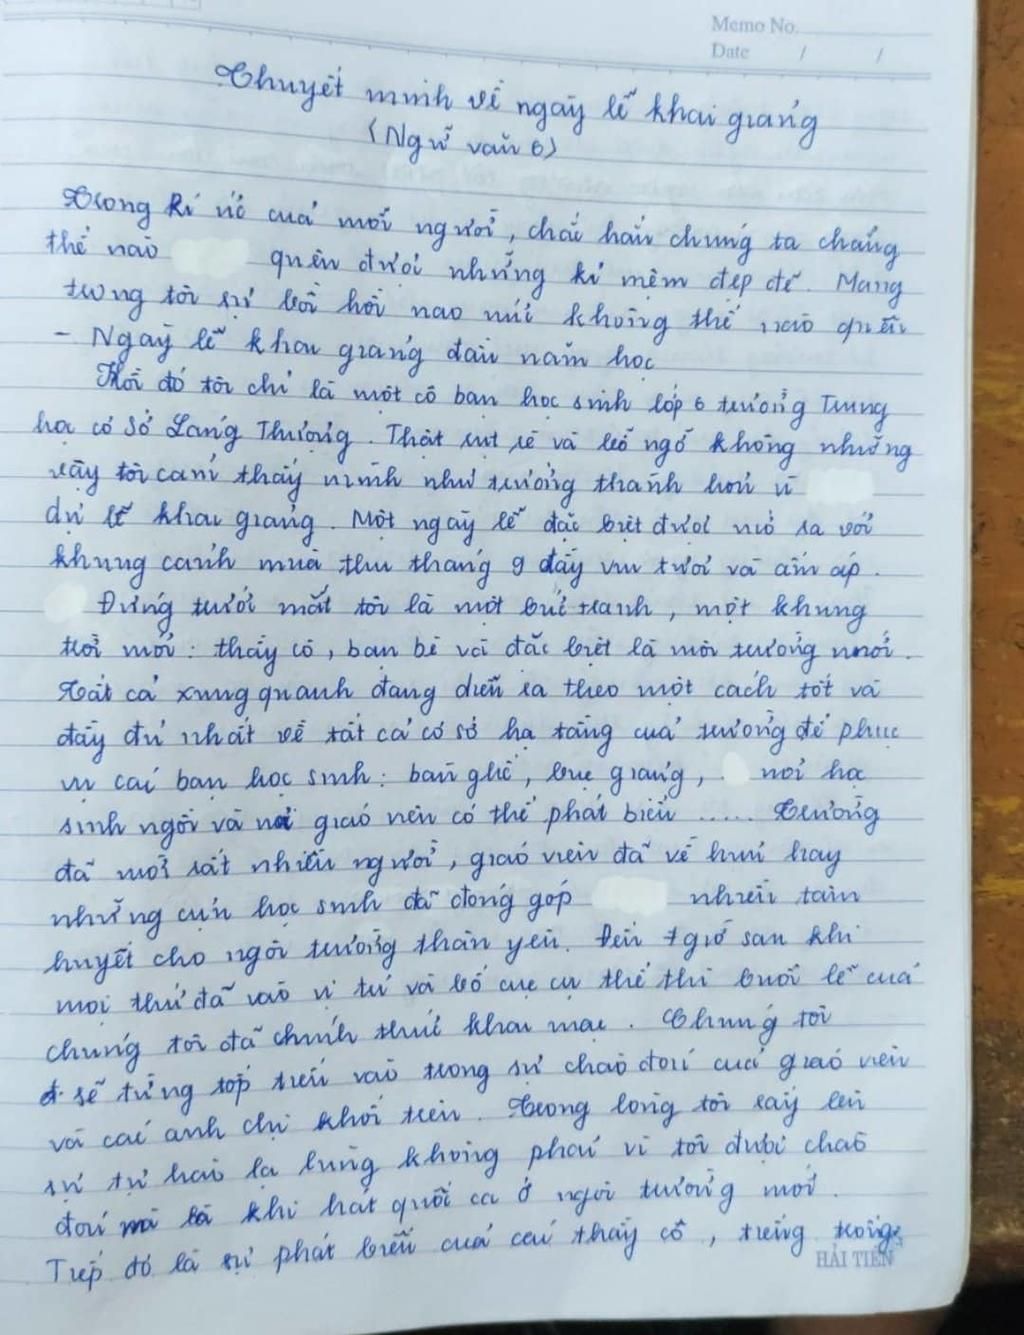 Memo No.
Date / /
Thuyết minh về ngày lễ khai giảng
(Ngữ văn 6)
Trong kí ức của mỗi người, chắc hẳn chúng ta chẳng
thể nào quên được những kỉ niệm đẹp đẽ. Mang
trong tôi sự bồi hồi nao núc không thể nào quên
- Ngày lễ khai giảng đầu năm học
Hồi đó tôi chỉ là một cô bạn học sinh lớp 6 trường Trung
học cơ sở Láng Thượng. Thật rụt rè và bỡ ngỡ không những
vậy tôi cảm thấy mình như trưởng thành hơn vì
dự lễ khai giảng. Một ngày lễ đặc biệt được mở ra với
khung cảnh mùa thu tháng 9 đầy vui tươi và ấm áp.
Đứng trước mắt tôi là một bức tranh, một khung
trời mới: thầy cô, bạn bè và đặc biệt là môi trường mới.
Tất cả xung quanh đang diễn ra theo một cách tốt và
đầy đủ nhất về tất cả cơ sở hạ tầng của trường để phục
vụ các bạn học sinh: bàn ghế, bục giảng, nơi học
sinh ngồi và nơi giáo viên có thể phát biểu ..... Trường
đã mời rất nhiều người, giáo viên đã về hưu hay
những cựu học sinh đã đóng góp nhiều tâm
huyết cho ngôi trường thân yêu. Đến 7 giờ sau khi
mọi thứ đã vào vị trí và bố cục cụ thể thì buổi lễ của
chúng tôi đã chính thức khai mạc. Chúng tôi
sẽ từng tốp tiến vào trong sự chào đón của giáo viên
và các anh chị khối trên. Trong lòng tôi rấy lên
sự tự hào lạ lùng không phải vì tôi được chào
đón mà là khi hát quốc ca ở ngôi trường mới.
Tiếp đó là sự phát biểu của các thầy cô, tiếng trống
HẢI TIẾN